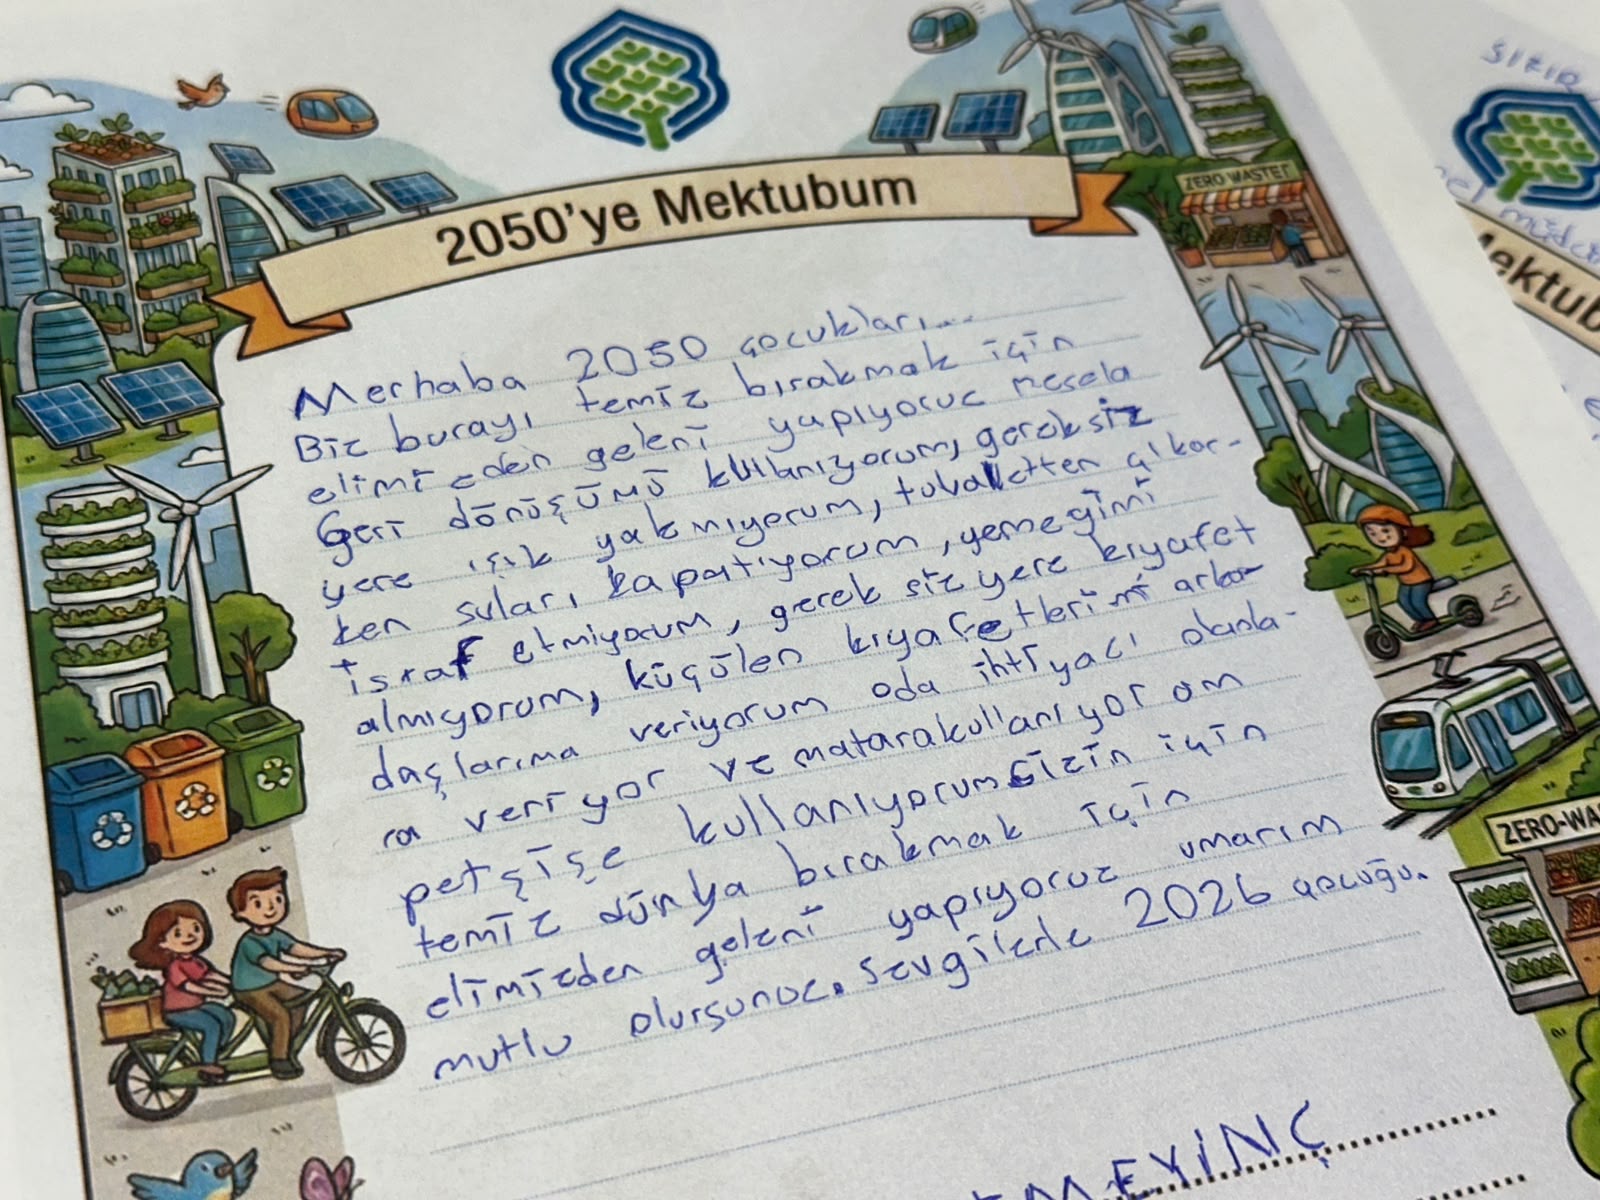 2050'ye Mektubum
Merhaba 2050 çocukları...
Biz burayı temiz bırakmak için
elimizden geleni yapıyoruz mesela
Geri dönüşümü kullanıyorum, gereksiz
yere ışık yakmıyorum, tuvaletten çıkar-
ken suları kapatıyorum, yemeğimi
israf etmiyorum, gerek siz yere kıyafet
almıyorum, küçülen kıyafetlerimi arka-
daşlarıma veriyorum oda ihtiyacı olanla-
ra veriyor ve matarakullanıyorum
petşişe kullanıyorum sizin için
temiz dünya bırakmak için
elimizden geleni yapıyoruz umarım
mutlu olursunuz. Sevgilerle 2026 çocuğu.
ZERO WASTE
ZERO-WA
ektub